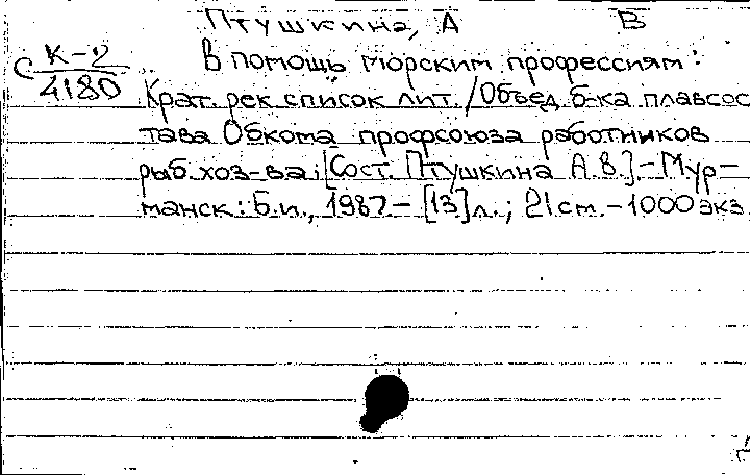 Птушкина, А В
С К-2
4180
В помощь морским профессиям:
Крат. рек. список лит. / Объед. б-ка плавсос
тава Обкома профсоюза работников
рыб. хоз-ва; [Сост. Птушкина А.В.].-Мур-
манск: Б.и., 1987.- [13] л.; 21 см.-1000 экз.